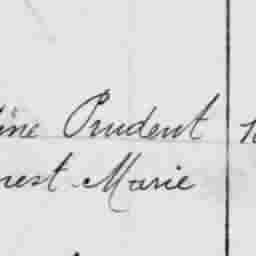 ine Prudent
nest Marie